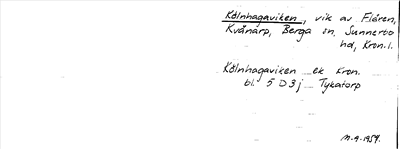 Kölnhagaviken, vik av Flåren,
Kvånarp, Berga sn, Sunnerbo
hd, Kron. l.
Kölnhagaviken ek Kron.
bl. 5 D 3 j Tykatorp
M. A. 1954.